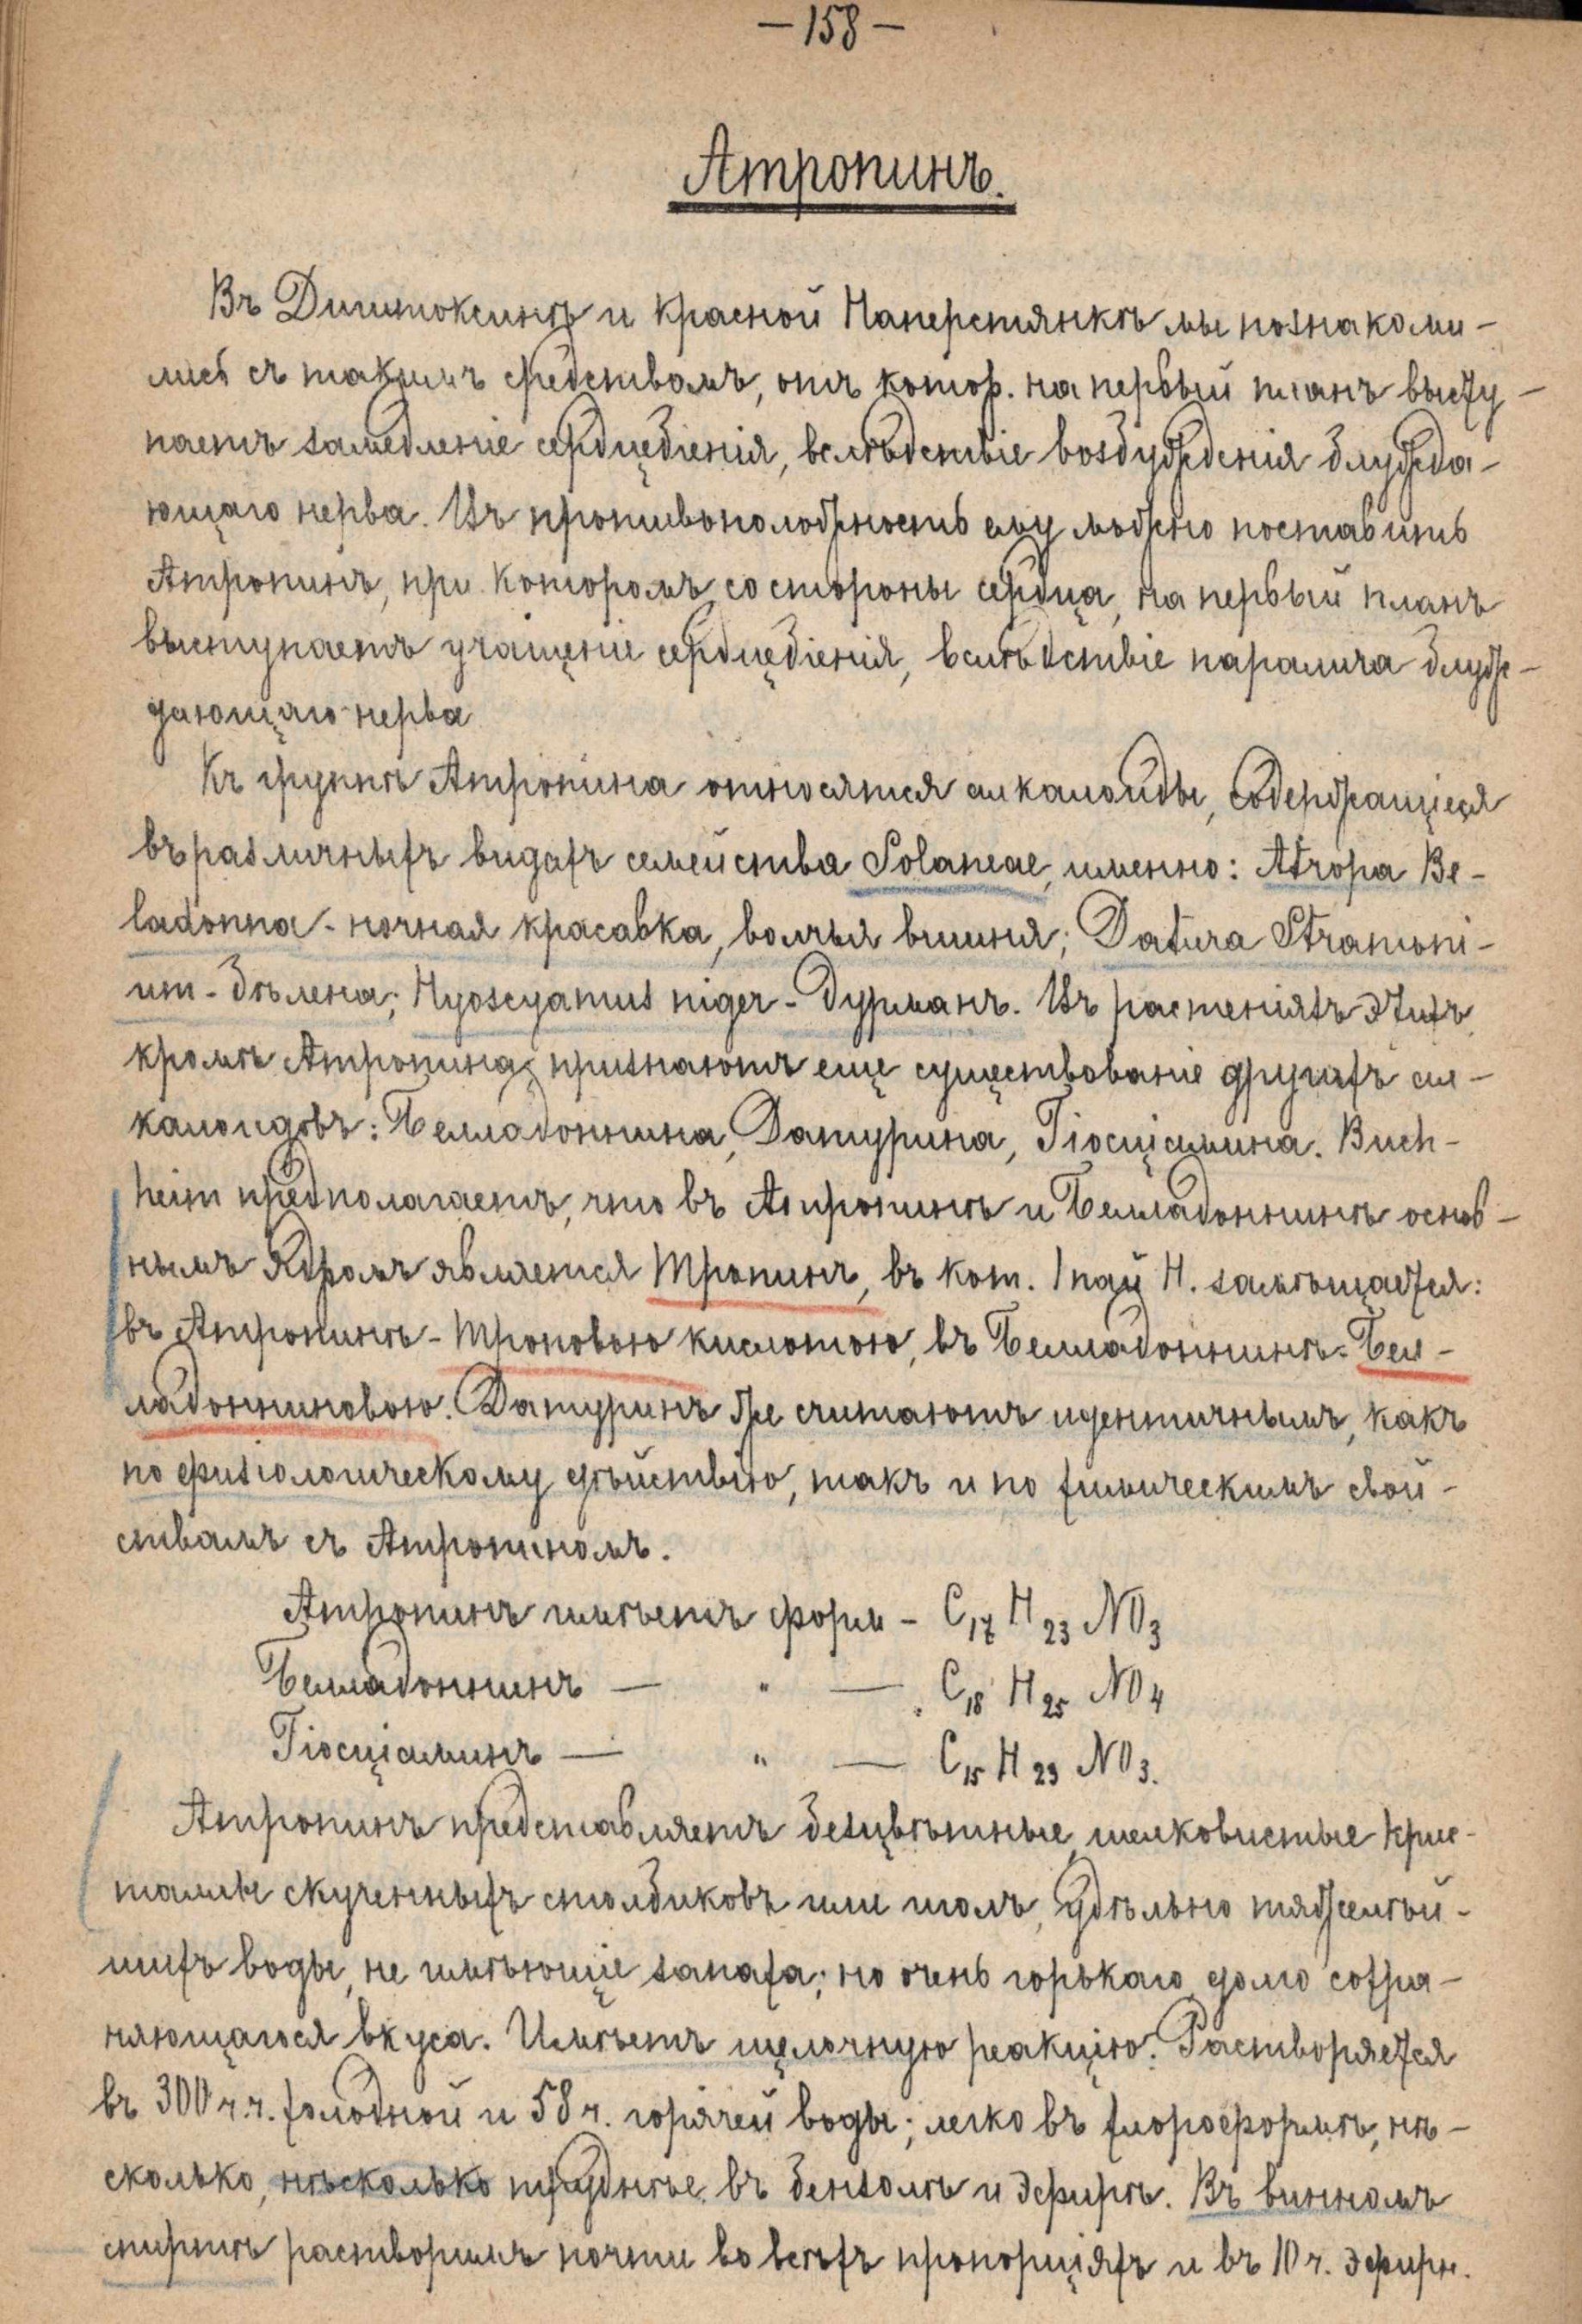 — 158 —
Атропинъ.
Въ Дигитоксинѣ и красной Наперстянкѣ мы познакоми-
лись съ такимъ средствомъ, отъ котор. на первый планъ высту-
паетъ замедленіе сердцебіенія, вслѣдствіе возбужденія блужда-
ющаго нерва. Въ противоположность ему можно поставить
Атропинъ, при которомъ, со стороны сердца, на первый планъ
выступаетъ учащеніе сердцебіенія, вслѣдствіе паралича блуж-
дающаго нерва
Къ группѣ Атропина относятся алкалоиды, содержащіеся
въ различныхъ видахъ семейства Solaneae, именно: Atropa Be-
ladonna - ночная красавка, волчья вишня; Datura Stramoni-
um - бѣлена; Hyoscyamus niger - Дурманъ. Въ растеніяхъ этихъ
кромѣ Атропина, признаютъ еще существованіе другихъ ал-
калоидовъ: Белладоннина, Датурина, Гіосціамина. Buch-
heim предполагаетъ, что въ Атропинѣ и Белладоннинѣ основ-
нымъ ядромъ является Тропинъ, въ кот. 1 пай H. замѣщается:
въ Атропинѣ - Троповою кислотою, въ Белладоннинѣ - Бел-
ладонниновою. Датуринъ же считаютъ идентичнымъ, какъ
по физіологическому дѣйствію, такъ и по химическимъ свой-
ствамъ съ Атропиномъ.
Атропинъ имѣетъ форм - C17 H23 NO3
Белладоннинъ — " — C18 H25 NO4
Гіосціаминъ — " — C15 H23 NO3.
Атропинъ представляетъ безцвѣтные, шелковистые крис-
таллы скученныхъ столбиковъ или иголъ, удѣльно тяжелѣй-
шихъ воды, не имѣющіе запаха; но очень горькаго, долго сохра-
няющагося вкуса. Имѣетъ щелочную реакцію. Растворяется
въ 300 ч.ч. холодной и 58 ч. горячей воды; легко въ хлороформѣ, нѣ-
сколько, нѣсколько труднѣе въ бензолѣ и эфирѣ. Въ винномъ
спиртѣ растворимъ почти во всѣхъ пропорціяхъ и въ 10 ч. эфирн.